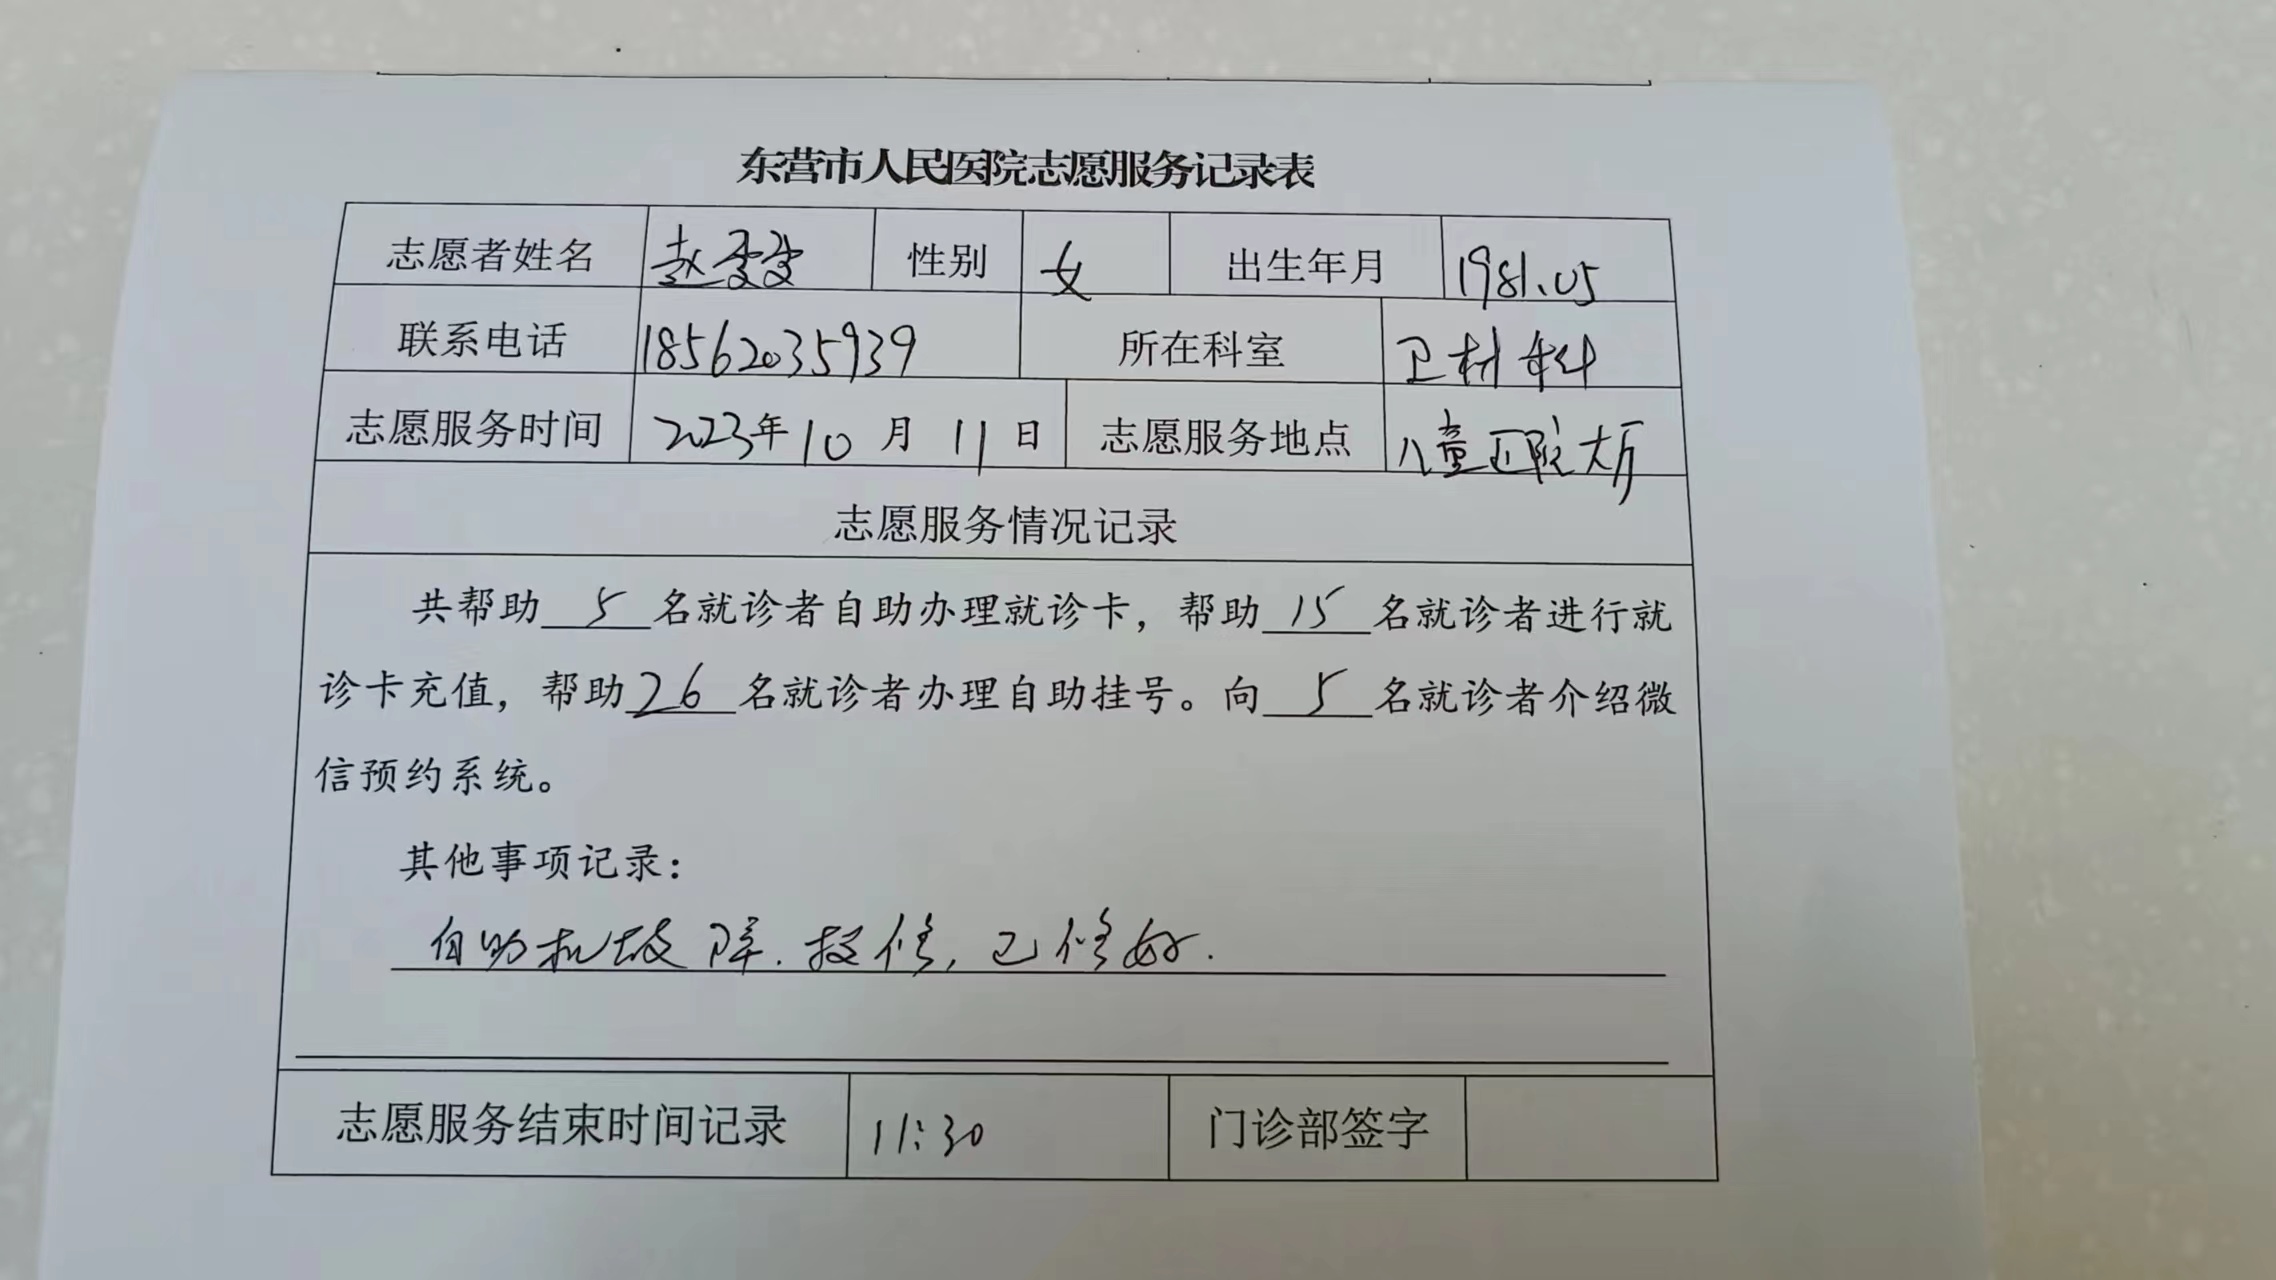 东营市人民医院志愿服务记录表
志愿者姓名 赵雯雯 性别 女 出生年月 1981.05
联系电话 18562035939 所在科室 卫材科
志愿服务时间 2023年10月11日 志愿服务地点 儿童医院大厅
志愿服务情况记录
共帮助 5 名就诊者自助办理就诊卡，帮助 15 名就诊者进行就
诊卡充值，帮助 26 名就诊者办理自助挂号。向 5 名就诊者介绍微
信预约系统。
其他事项记录：
自助机故障.报修,已修好.
志愿服务结束时间记录 11:30 门诊部签字